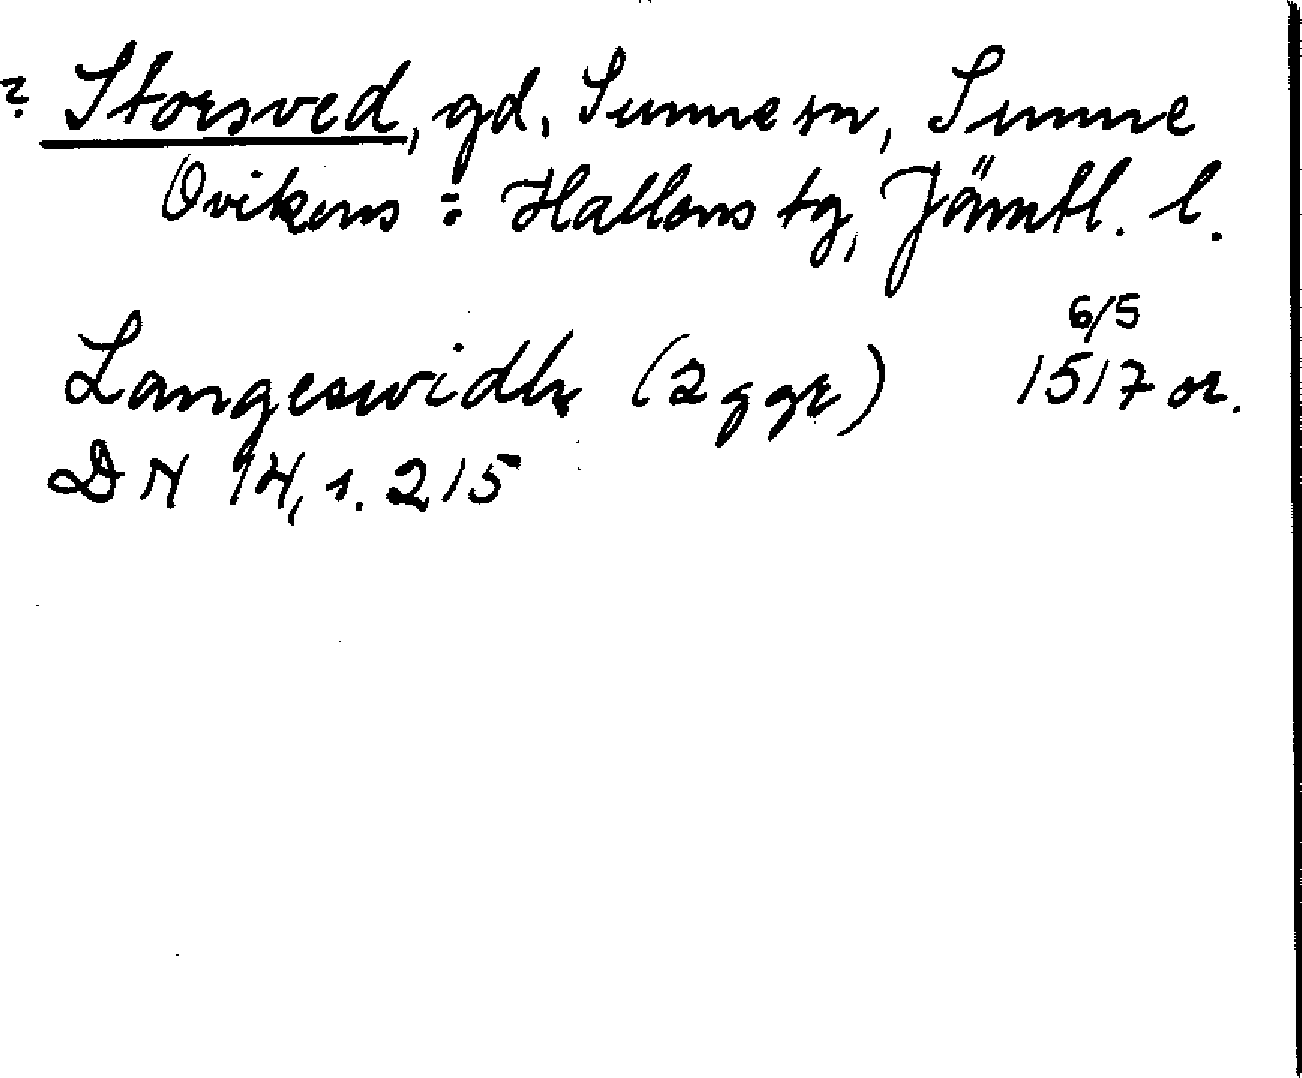 ? Storsved, gd, Sunne sn, Sunne
Ovikens : Hallens tg, Jämtl. l.
6/5
Langeswidh (2 ggr) 1517 or.
DN 14, s. 215